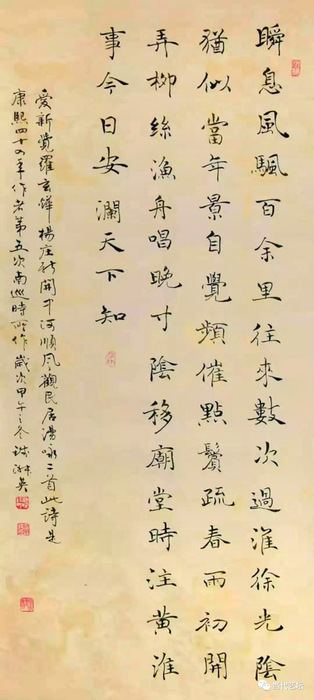 瞬息風颿百余里往來數次過淮徐光陰
猶似當年景自覺頻催點鬢疏春雨初開
弄柳絲漁舟唱晚寸陰移廟堂時注黃淮
事今日安瀾天下知
愛新覺羅玄燁楊庄新開中河順風觀民居漫咏二首此詩是
康熙四十四年作者第五次南巡時所作歲次甲午之冬
当代艺坛